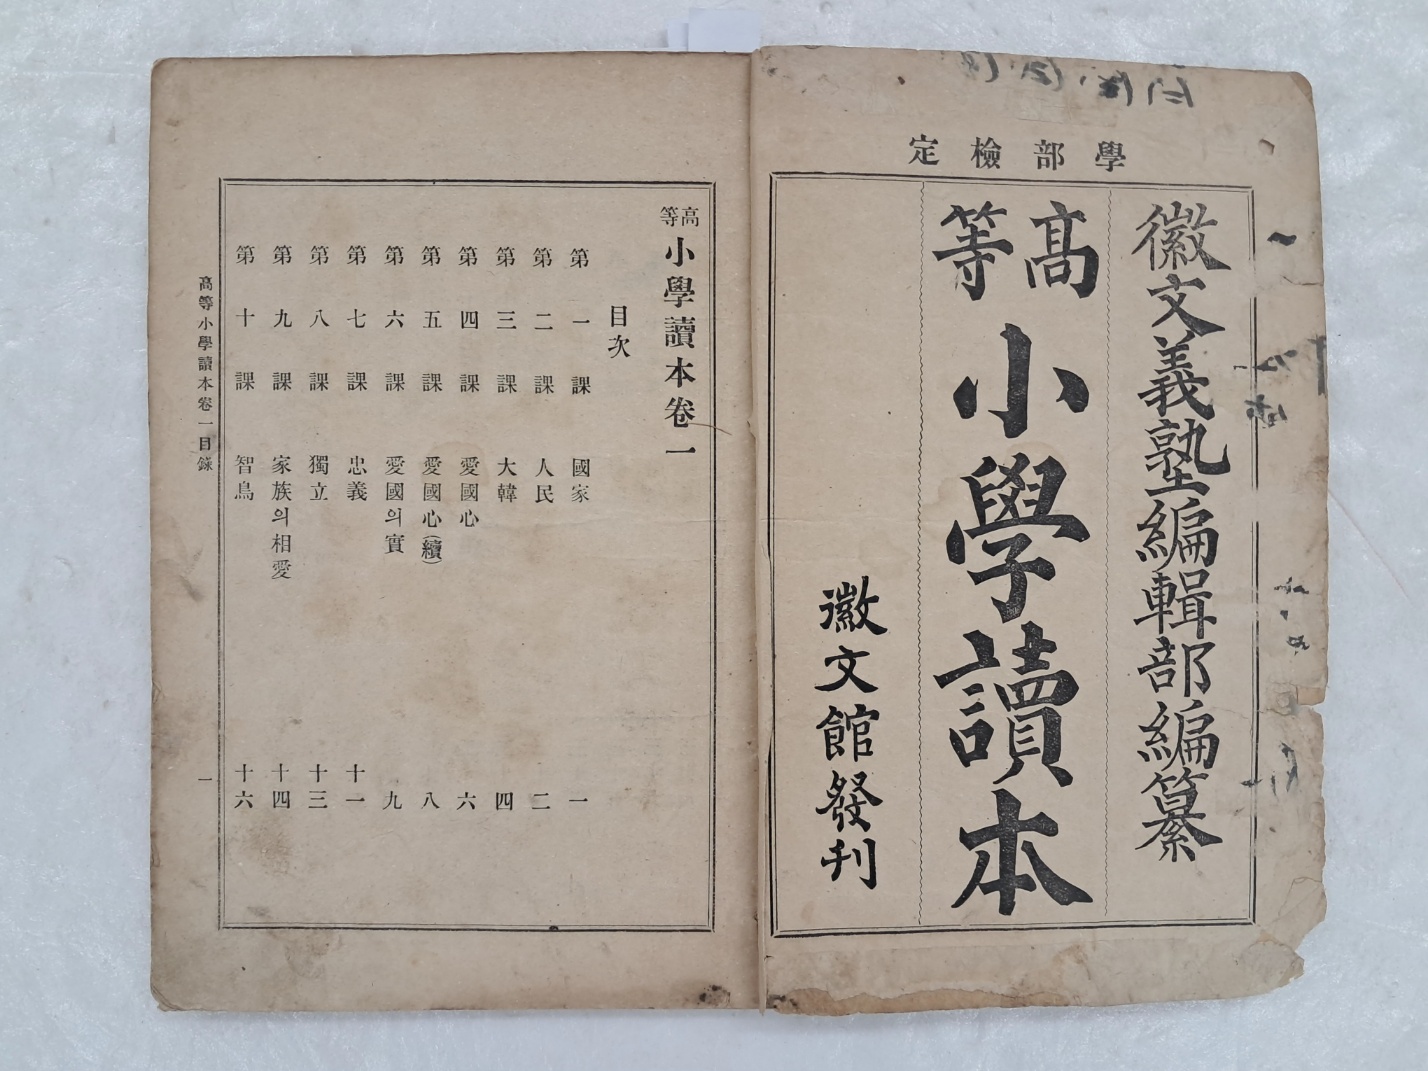 學部檢定
徽文義塾編輯部編纂
高等小學讀本
徽文館發刊
高等小學讀本卷一
目次
第一課 國家 一
第二課 人民 二
第三課 大韓 四
第四課 愛國心 六
第五課 愛國心(續) 八
第六課 愛國의實 九
第七課 忠義 十一
第八課 獨立 十三
第九課 家族의相愛 十四
第十課 智鳥 十六
高等小學讀本卷一目錄 一